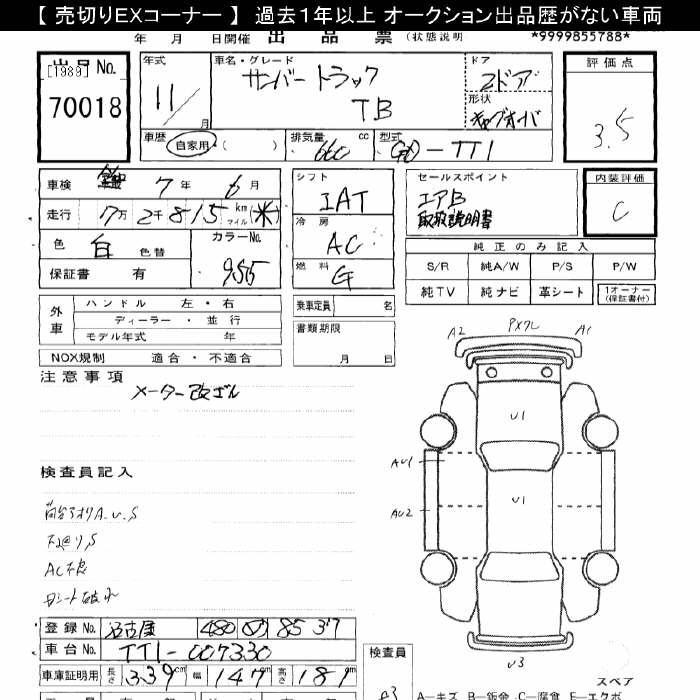 【 売切りEXコーナー 】 過去1年以上 オークション出品歴がない車両
年 月 日開催 出品票 (状態説明 *9999855788*
[1989]
出品No.
70018
年式
11/
月
車名・グレード
サンバートラック
TB
ドア
2ドア
形状
キャブオーバ
評価点
3.5
車歴
自家用・( )
排気量 cc
660
型式
-TT1
車検 7年 6月
走行 7万2千815 km マイル (米)
色 白 色替
カラーNo.
955
保証書 有
シフト
IAT
冷房
AC
燃料
G
セールスポイント
エアB
取扱説明書
内装評価
C
純正のみ記入
S/R 純A/W P/S P/W
純TV 純ナビ 革シート 1オーナー(保証書付)
外車
ハンドル 左・右
ディーラー・並行
モデル年式 年
NOX規制 適合・不適合
乗車定員 名
書類期限
月 日
注意事項
メーター改ザル
検査員記入
荷台アオリA.U.S
下回りS
AC不良
シート破れ
A2 A1
U1
AU1
U1
AU2
U3
登録No. 名古屋 480 85 37
車台No. TT1-007330
車庫証明用 長さ 339cm 幅 147cm 高さ 181cm
検査員
スペア
A-キズ B-鈑金 C-腐食 E-エクボ